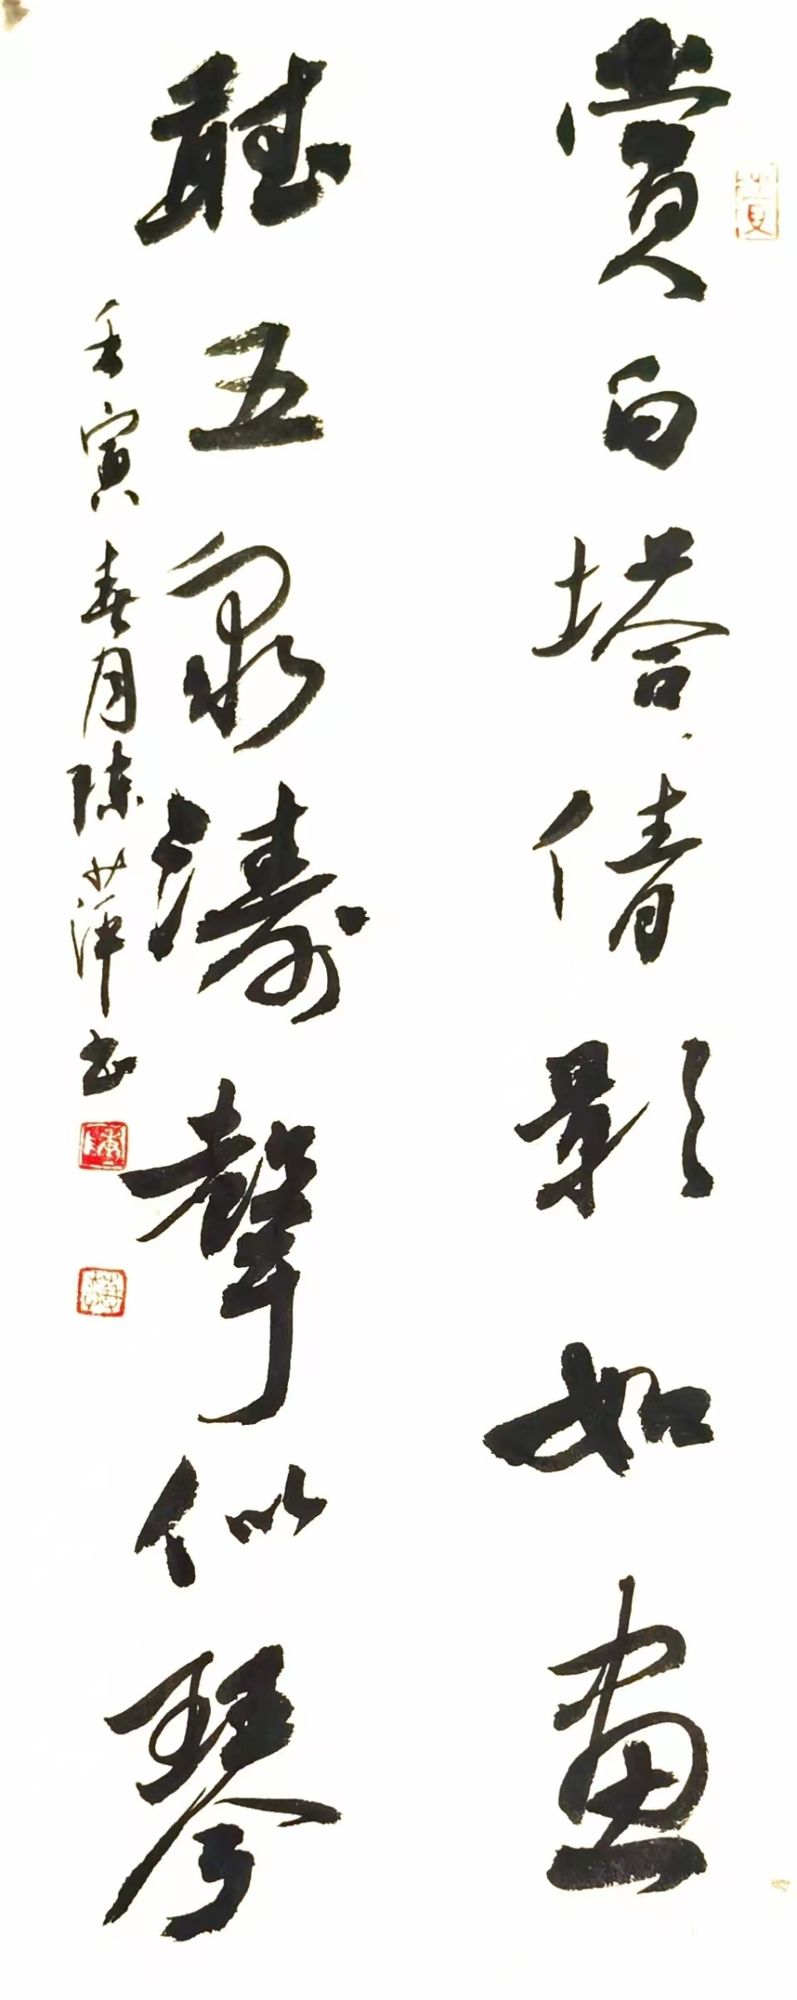 賞白塔倩影如畫
聽五泉濤聲似琴
壬寅春月陈少萍书